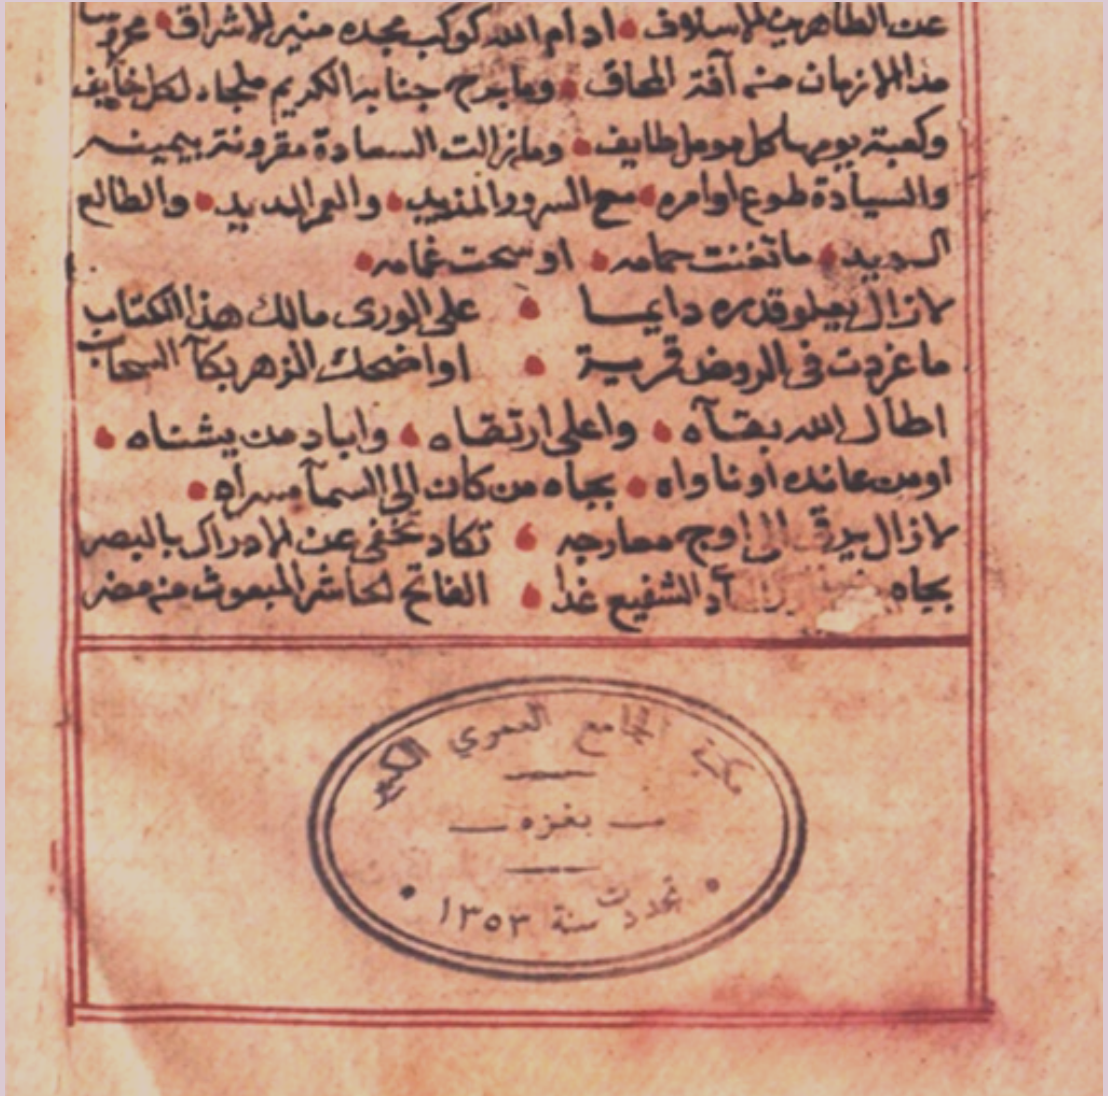 عن الطاهرين الاسلاف ادام الله كوكب مجده منير الاشراق
مدا الازمان من آفة المحاق وما برح جنابه الكريم ملجاء لكل خايف
وكعبة يومها كل مومل طايف وما زالت السعادة مقرونة بيمينه
والسيادة طوع اوامره مع السرور المزيد والعمر المديد والطالع
ما تغنت حمامه او سحت غمامه
لا زال يعلو قدره دايما على الورى مالك هذا الكتاب
ما غردت في الروض قرية او اضحك الزهر بكآ السحاب
اطال الله بقآه واعلى ارتقاه واباد من يشناه
او من عانده او ناواه بجاه من كان الى السمآ مسراه
لا زال يرقى الى اوج معارجه تكاد تخفى عن الادراك بالبصر
بجاه الشفيع غدا الفاتح الحاشر المبعوث من مضر
مكتبة الجامع العمري الكبير
بغزه
تجددت سنة ١٣٥٣